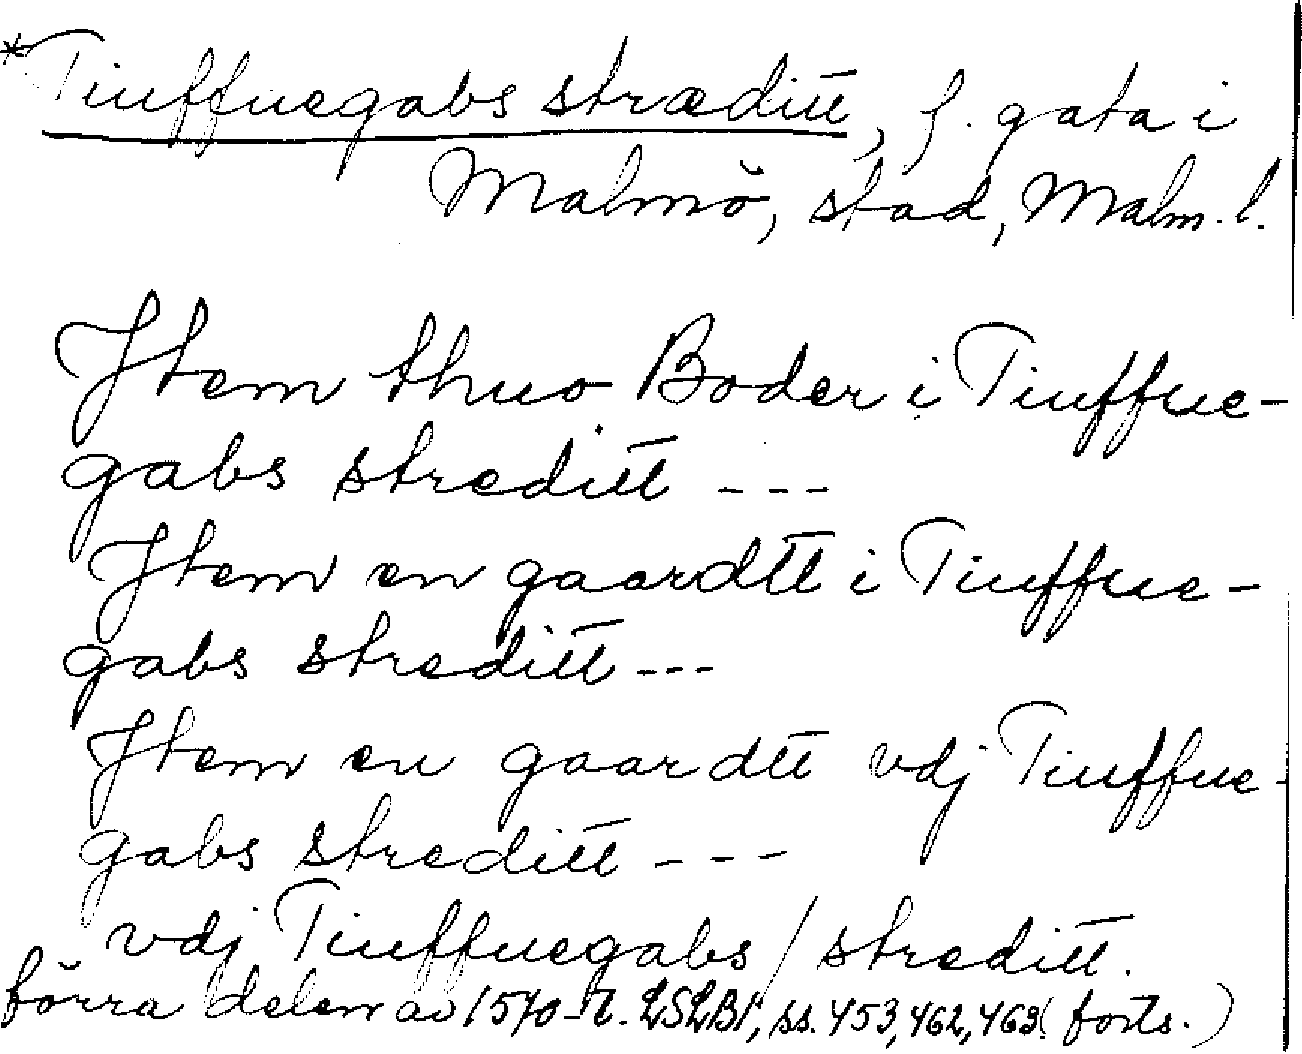 *Tiuffuegabs stræditt, f. gata i
Malmö, stad, Malm. l.
Jtem thuo Boder i Tiuffue-
gabs streditt ---
Jtem en gaardtt i Tiuffue-
gabs streditt ---
Jtem en gaardtt vdj Tiuffue-
gabs streditt ---
vdj Tiuffuegabs / streditt.
förra delen av 1570-t. LSLB1, ss. 453, 462, 463 (forts.)